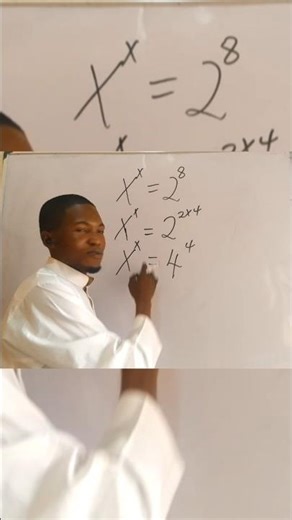 x^x = 2^8
x^x = 2^8
x^x = 2^{2x4}
x^x = 4^4